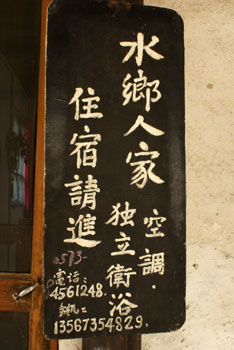 水鄉人家
空調·
独立衛浴
住宿請進
0573-
電话:
4561248.
手机:
13567354829.